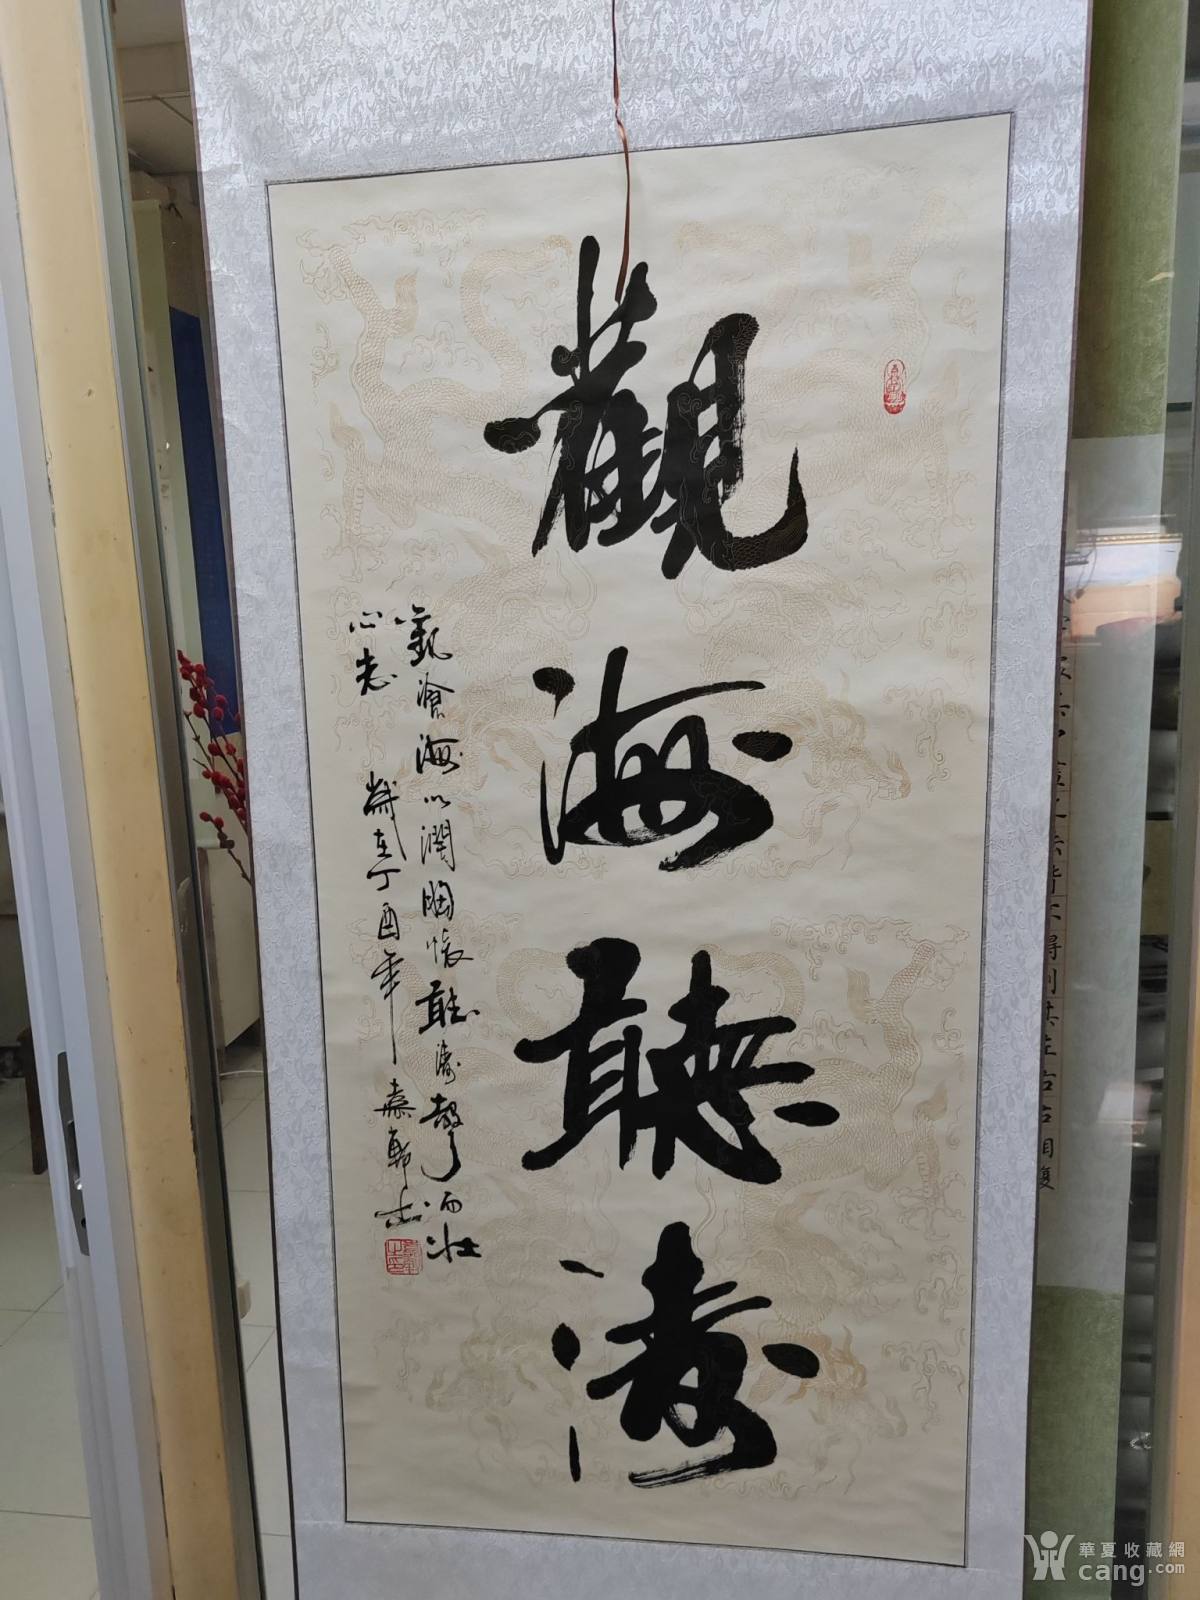 觀海聽濤
觀滄海以潤胸懷聽濤聲而壯
心志 歲在丁酉年 嘉軒書
得別其左右自復
華夏收藏網
cang.com